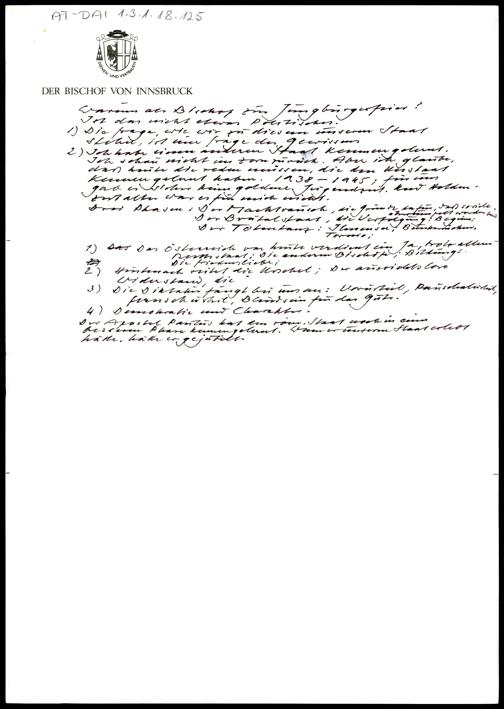 AT-DAI 1.3.1.18.125
DIENEN UND VERTRAUEN
DER BISCHOF VON INNSBRUCK
Warum als Bischof zur Jungbürgerfeier?
Ist das nicht etwas Politisches.
1) Die Frage, wie wir zu diesem unserem Staat
stehen, ist eine Frage des Gewissens
2) Ich habe einen anderen Staat kennengelernt.
Ich schau nicht im Zorn zurück. Aber ich glaube,
daß heute die reden müssen, die den Unstaat
kennengelernt haben. 1938 – 1945, für uns
gab es sicher keine goldene Jugendzeit. Und Helden-
zeitalter war es für mich nicht.
Drei Phasen: Der Machtrausch, die
Der Brutalstaat, die Verfolgung: Beginn;
Der Totentanz:
Terror;
1) Das Der Österreich von heute verdient ein Ja, trotz allem
Rechtsstaat; Die anderen Bischöfe; Bildungs-
Die Friedensliebe;
2) Hintennach reitet die Urschel; Der aussichtslose
Widerstand, die
3) Die Diktatur fängt bei uns an: Vorurteil, Pauschalurteil,
Blindsein für das Gute.
4) Demokratie und Charakter.
Der Apostel Paulus hat den röm. Staat noch in einer
besseren Phase kennengelernt. Wenn er unseren Staat erlebt
hätte, hätte er gejubelt.